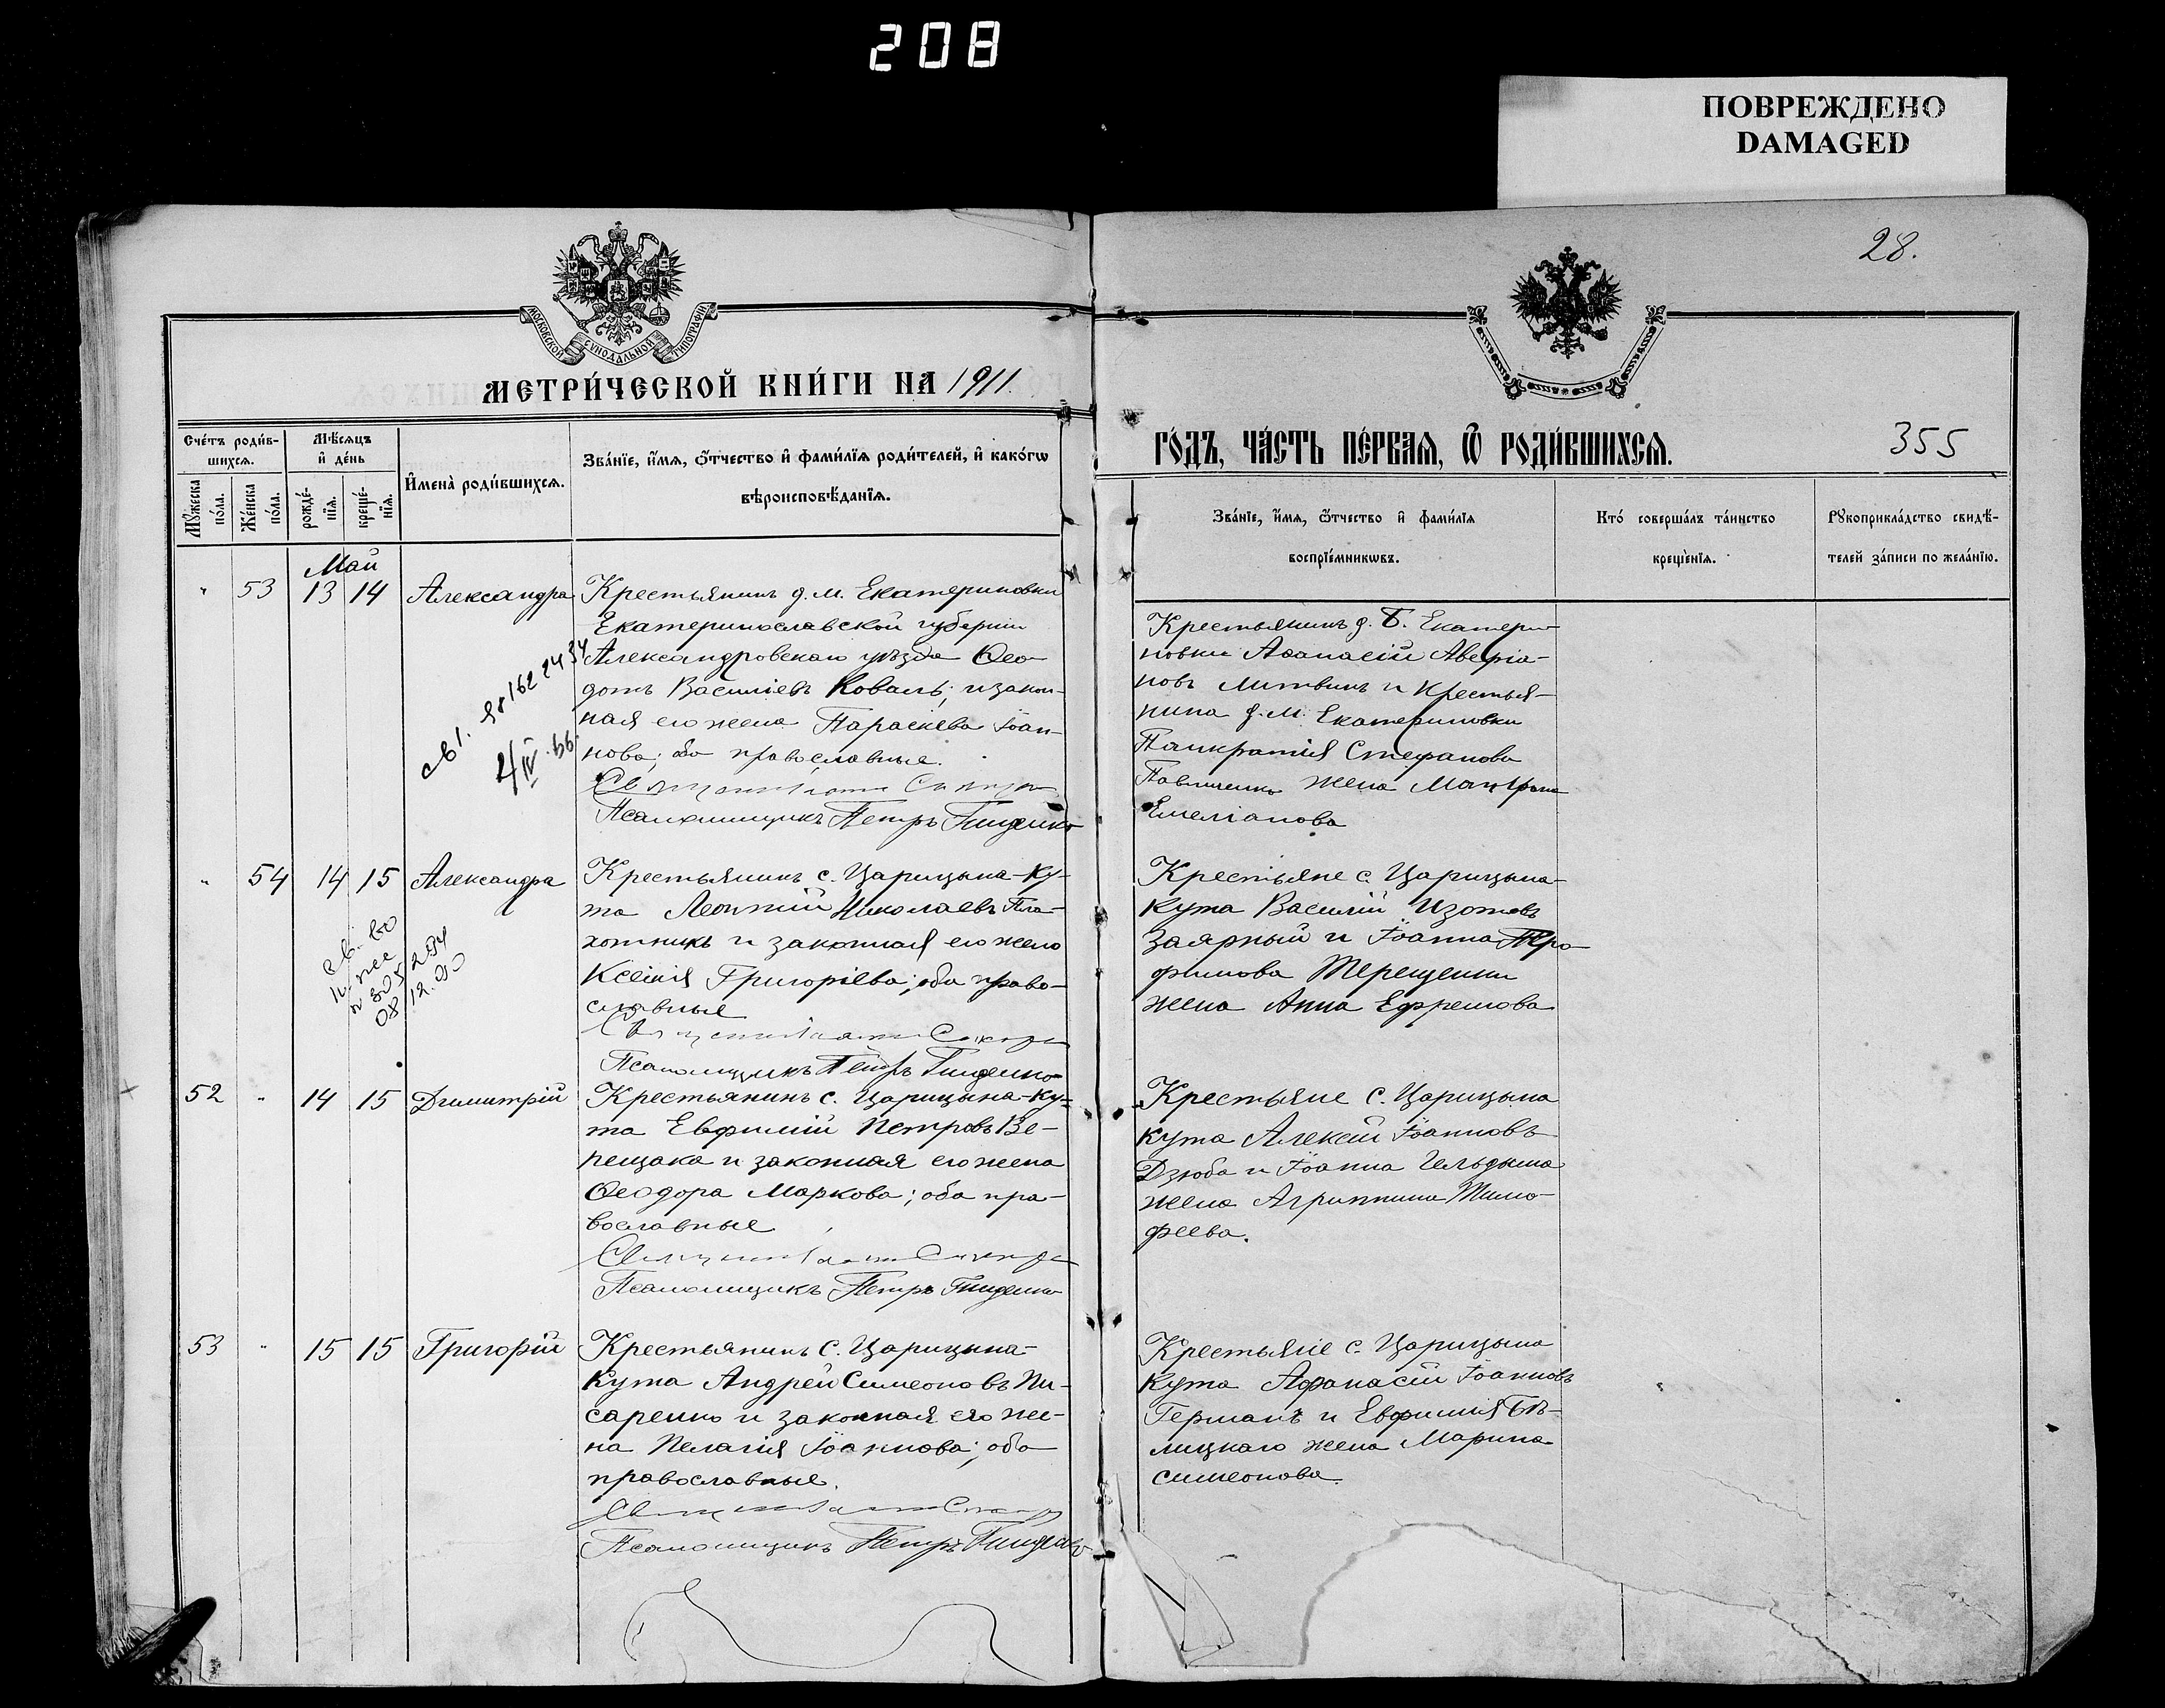 208
ПОВРЕЖДЕНО
DAMAGED
28.
МОСКОВСКОЙ СѴНОДАЛЬНОЙ ТИПОГРАФІИ
МЕТРИ́ЧЕСКОЙ КНИ́ГИ НА 1911.
ГО́ДЪ, ЧА́СТЬ ПЕ́РВАѦ, Ѿ РОДИ́ВШИХСѦ.
355
Сче́тъ роди́в-
шихсѧ.
Мꙋ́жеска
по́ла.
Же́нска
по́ла.
Мѣ́сѧцъ
и҆ де́нь
рожде́-
нїѧ.
креще́-
нїѧ.
И҆мена̀ роди́вшихсѧ.
Зва́нїе, и҆́мѧ, ѻ҆́тчество и҆ фами́лїѧ роди́телей, и҆ како́гѡ
вѣроисповѣ́данїѧ.
Зва́нїе, и҆́мѧ, ѻ҆́тчество и҆ фами́лїѧ
воспрїе́мникѡвъ.
Кто́ соверша́лъ та́инство
креще́нїѧ.
Рꙋкоприкла́дство свидѣ́-
телей за́писи по жела́нїю.
Май
" 53 13 14 Александра
Крестьянинъ д. М. Екатериновки
Екатеринославской губерніи
Александровскаго уѣзда Ѳео-
дотъ Василіевъ Коваль, и закон-
ная его жена Параскева Іоан-
нова; оба православные.
Псаломщикъ Петръ Гниденко
Крестьянинъ д. Б. Екатери-
новки Аѳанасій Аверіа-
новъ Литвинъ и крестья-
нина д. М. Екатериновки
Панкратія Стефанова
жена
Емеліанова
" 54 14 15 Александра
Крестьянинъ с. Царицына-Ку-
та Леонтій Николаевъ Пла-
хотникъ и законная его жена
Ксенія Григоріева; оба право-
славные
Псаломщикъ Петръ Гниденко
Крестьяне с. Царицына-
Кута Василій Изотовъ
Заярный и Іоанна Тро-
фимова Терещенки
жена Анна Ефремова
52 " 14 15 Димитрій
Крестьянинъ с. Царицына-Ку-
та Евфимій Петровъ Ве-
рещака и законная его жена
Ѳеодора Маркова; оба пра-
вославные
Псаломщикъ Петръ Гниденко
Крестьяне с. Царицына
Кута Алексій Іоанновъ
Дзюба и Іоанна
жена Агриппина Тимо-
феева.
53 " 15 15 Григорій
Крестьянинъ с. Царицына-
Кута Андрей Симеоновъ Пи-
саренко и законная его же-
на Пелагія Іоаннова; оба
православные.
Псаломщикъ Петръ Гниденко
Крестьяне с. Царицына
Кута Афанасій Іоанновъ
Германъ и Евфимія Бѣ-
лицкаго жена Марина
Симеонова.